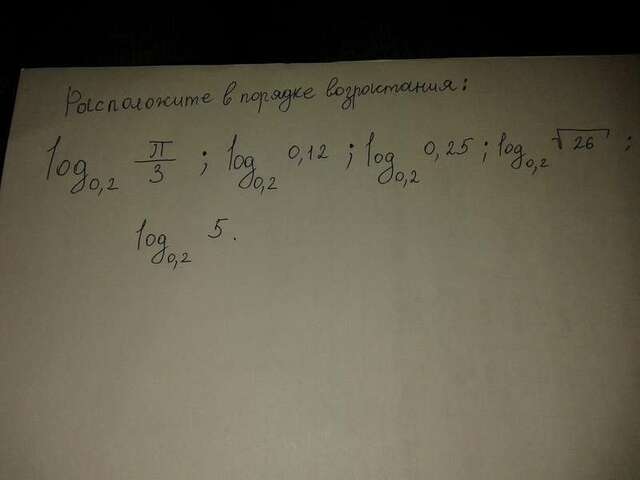 Расположите в порядке возрастания:
log₀,₂ π/3 ; log₀,₂ 0,12 ; log₀,₂ 0,25 ; log₀,₂ √26 ;
log₀,₂ 5.